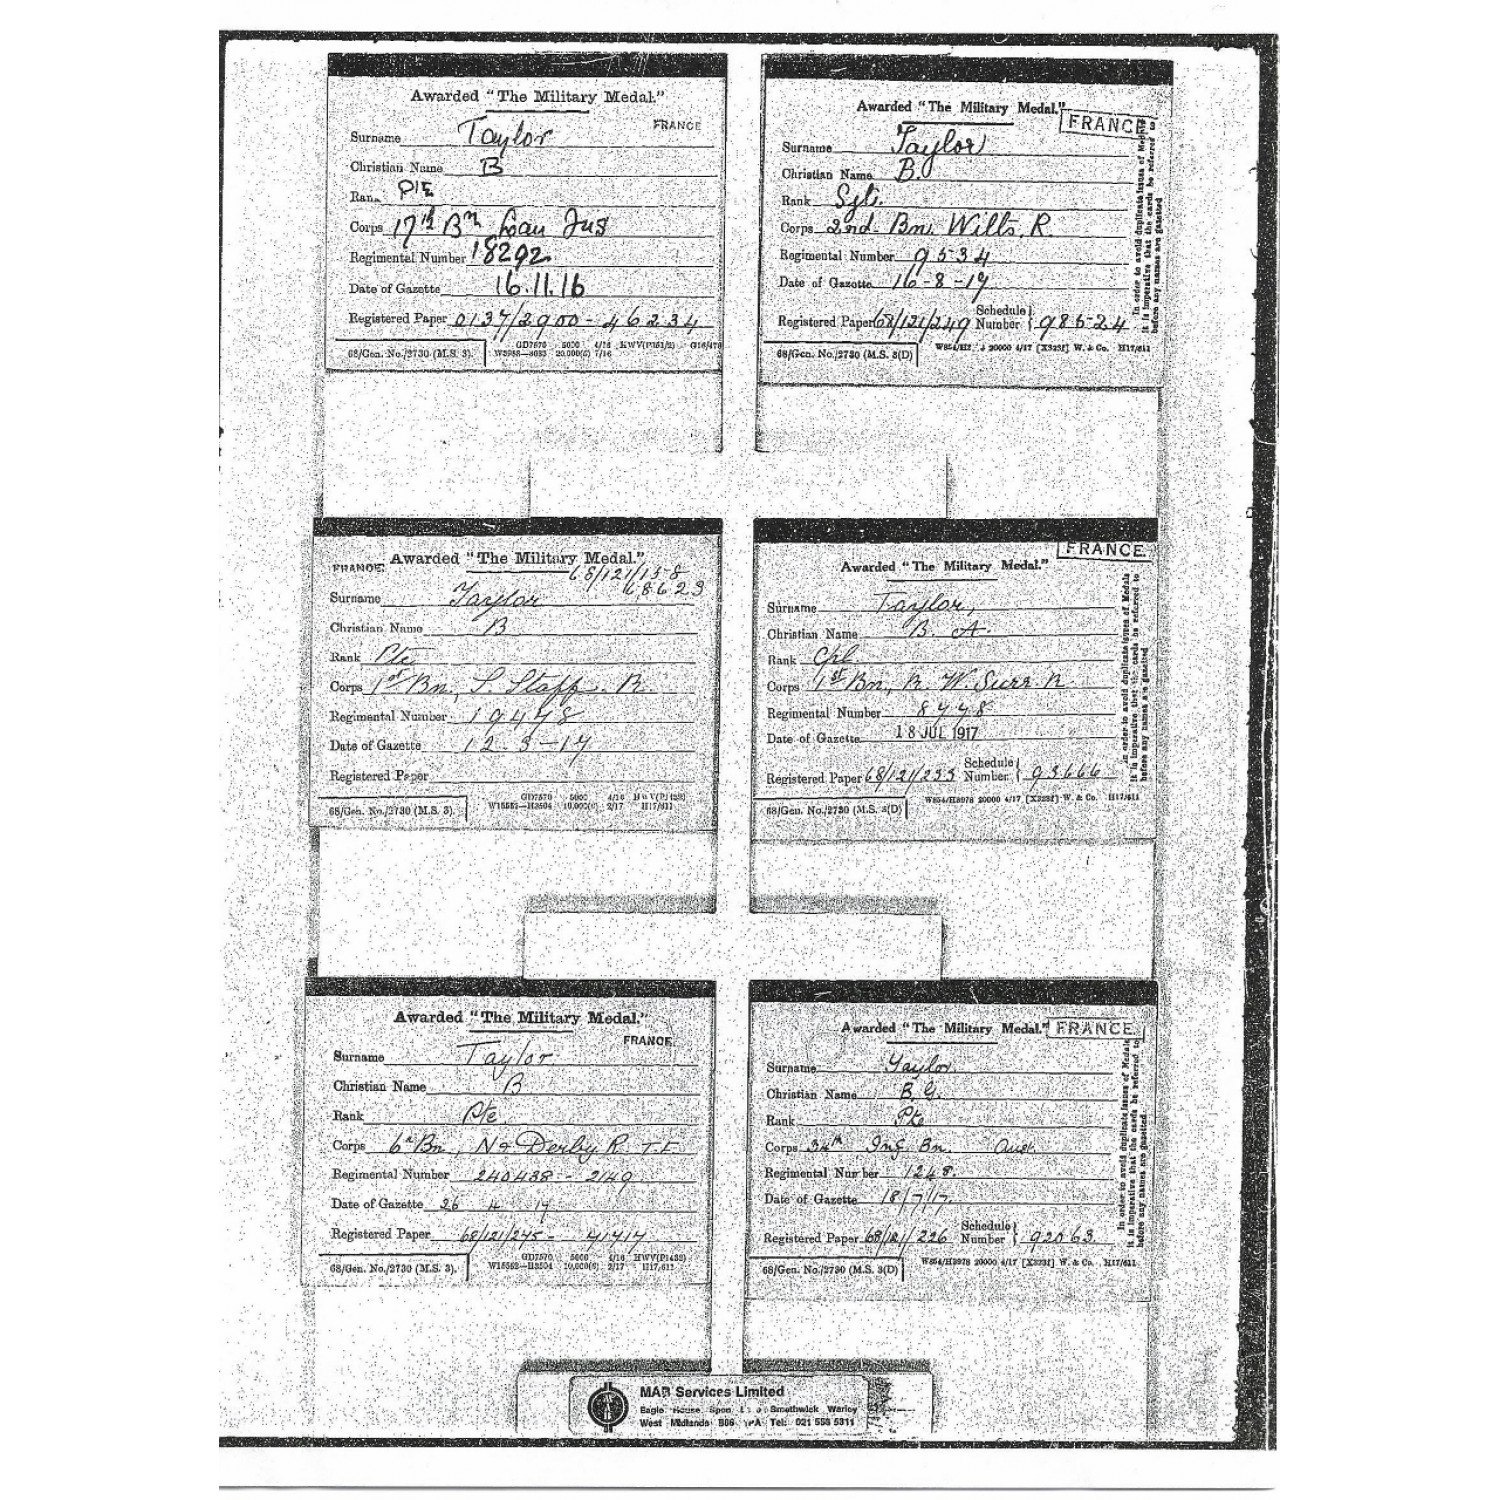 Awarded "The Military Medal."
FRANCE
Surname Taylor
Christian Name B
Rank Pte
Corps 17th Bn Lan Fus
Regimental Number 18292
Date of Gazette 16.11.16
Registered Paper 0137/2900 - 46234
68/Gen. No./2730 (M.S. 3).
GD7570 5000 4/16 HWV(P151/2)
20,000(6) 7/16
Awarded "The Military Medal."
FRANCE
Surname Taylor
Christian Name B.
Rank Sgt.
Corps 2nd Bn. Wilts. R.
Regimental Number 9534
Date of Gazette 16-8-17
Registered Paper 68/121/249 Schedule Number 98524
68/Gen. No./2730 (M.S. 3(D)
20000 4/17 [X323f] W. & Co. H17/611
In order to avoid duplicate issues of Medals
it is imperative that the cards be referred to
before any names are gazetted
Awarded "The Military Medal."
FRANCE.
68/121/158
68623
Surname Taylor
Christian Name B
Rank Pte
Corps 1st Bn, S. Staff. R.
Regimental Number 19478
Date of Gazette 12-3-17
Registered Paper
68/Gen. No./2730 (M.S. 3).
GD7570 5000 4/16 HWV(P1439)
W15552—H3504 10,000(6) 2/17 H17/611
FRANCE
Awarded "The Military Medal."
Surname Taylor,
Christian Name B. A.
Rank Cpl.
Corps 1st Bn, R. W. Surr. R.
Regimental Number 8778
Date of Gazette 18 JUL 1917
Registered Paper 68/121/233 Schedule Number 93666
68/Gen. No./2730 (M.S. 3(D)
W854/H3978 20000 4/17 [X323f] W. & Co. H17/611
In order to avoid duplicate issues of Medals
it is imperative that the cards be referred to
before any names are gazetted
Awarded "The Military Medal."
FRANCE.
Surname Taylor
Christian Name B
Rank Pte
Corps 6th Bn, No Derby R. T.F.
Regimental Number 240438 - 2149
Date of Gazette 26 4 17
Registered Paper 68/121/275 - 71717
68/Gen. No./2730 (M.S. 3).
GD7570 5000 4/16 HWV(P1439)
W15552—H3504 10,000(6) 2/17 H17/611
Awarded "The Military Medal."
FRANCE
Surname Taylor
Christian Name B. G.
Rank Pte
Corps 34th Inf. Bn. Aust.
Regimental Number 1248.
Date of Gazette 18/7/17.
Registered Paper 68/121/226 Schedule Number 92063.
68/Gen. No./2730 (M.S. 3(D)
W854/H3978 20000 4/17 [X323f] W. & Co. H17/611
In order to avoid duplicate issues of Medals
it is imperative that the cards be referred to
before any names are gazetted
MAB Services Limited
Eagle House Spon Smethwick Warley
West Midlands B66 Tel: 021 553 5311